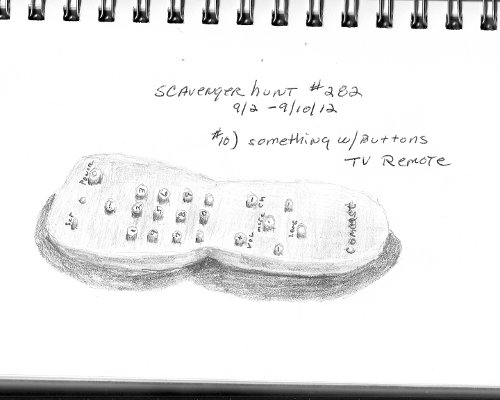 SCAVENGER HUNT #282
9/2 - 9/10/12
#10) something w/Buttons
TV Remote
Power
Comcast
VOL
mute
CH